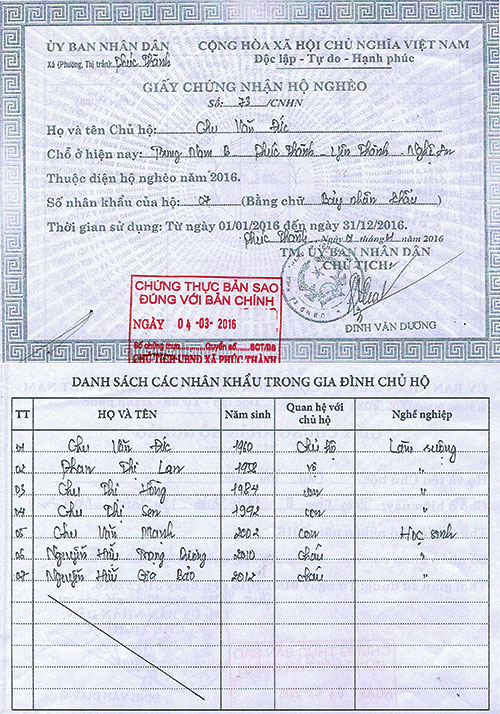 ỦY BAN NHÂN DÂN
Xã (Phường, Thị trấn): Phúc Thành
CỘNG HÒA XÃ HỘI CHỦ NGHĨA VIỆT NAM
Độc lập - Tự do - Hạnh phúc
GIẤY CHỨNG NHẬN HỘ NGHÈO
Số: 73 /CNHN
Họ và tên Chủ hộ: Chu Văn Đức
Chỗ ở hiện nay: Trung Nam B Phúc Thành - Yên Thành - Nghệ An
Thuộc diện hộ nghèo năm 2016.
Số nhân khẩu của hộ: 07 (Bằng chữ Bảy nhân khẩu)
Thời gian sử dụng: Từ ngày 01/01/2016 đến ngày 31/12/2016.
Phúc Thành, Ngày tháng năm 2016
TM. ỦY BAN NHÂN DÂN
CHỦ TỊCH
ĐINH VĂN DƯƠNG
CHỨNG THỰC BẢN SAO
ĐÚNG VỚI BẢN CHÍNH
NGÀY 04-03-2016
Số chứng thực Quyển số SCT/BS
CHỦ TỊCH UBND XÃ PHÚC THÀNH
DANH SÁCH CÁC NHÂN KHẨU TRONG GIA ĐÌNH CHỦ HỘ
TT HỌ VÀ TÊN Năm sinh Quan hệ với chủ hộ Nghề nghiệp
01 Chu Văn Đức 1960 Chủ hộ Làm ruộng
02 Phan Thị Lan 1958 vợ "
03 Chu Thị Hồng 1984 con "
04 Chu Thị Sen 1992 con "
05 Chu Văn Mạnh 2002 con Học sinh
06 Nguyễn Hữu Trọng Dương 2010 cháu "
07 Nguyễn Hữu Gia Bảo 2012 cháu "